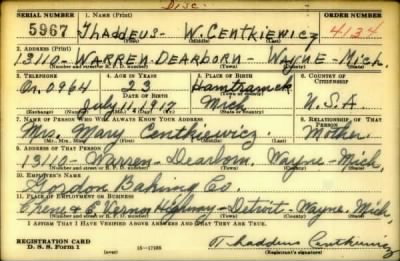 Disc.
SERIAL NUMBER 1. NAME (Print) ORDER NUMBER
5967 Thaddeus - W. Centkiewicz 4134
(First) (Middle) (Last)
2. ADDRESS (Print)
13110 - WARREN - DEARBORN - WAYNE - Mich.
(Number and street or R. F. D. number) (Town) (County) (State)
3. TELEPHONE 4. AGE IN YEARS 5. PLACE OF BIRTH 6. COUNTRY OF CITIZENSHIP
Or. 0964 23 Hamtramck
DATE OF BIRTH (Town or county)
July 11, 1917 Mich U.S.A.
(Exchange) (Number) (Mo.) (Day) (Yr.) (State or country)
7. NAME OF PERSON WHO WILL ALWAYS KNOW YOUR ADDRESS 8. RELATIONSHIP OF THAT PERSON
Mrs. Mary Centkiewicz. Mother.
(Mr., Mrs., Miss) (First) (Middle) (Last)
9. ADDRESS OF THAT PERSON
13110 - Warren - Dearborn, Wayne - Mich,
(Number and street or R. F. D. number) (Town) (County) (State)
10. EMPLOYER'S NAME
Gordon Baking Co.
11. PLACE OF EMPLOYMENT OR BUSINESS
Chene & E. Vernor Highway - Detroit - Wayne. Mich.
(Number and street or R. F. D. number) (Town) (County) (State)
I AFFIRM THAT I HAVE VERIFIED ABOVE ANSWERS AND THAT THEY ARE TRUE.
REGISTRATION CARD
D. S. S. Form 1 (over) Thaddeus Centkiewicz
(Registrant's signature)